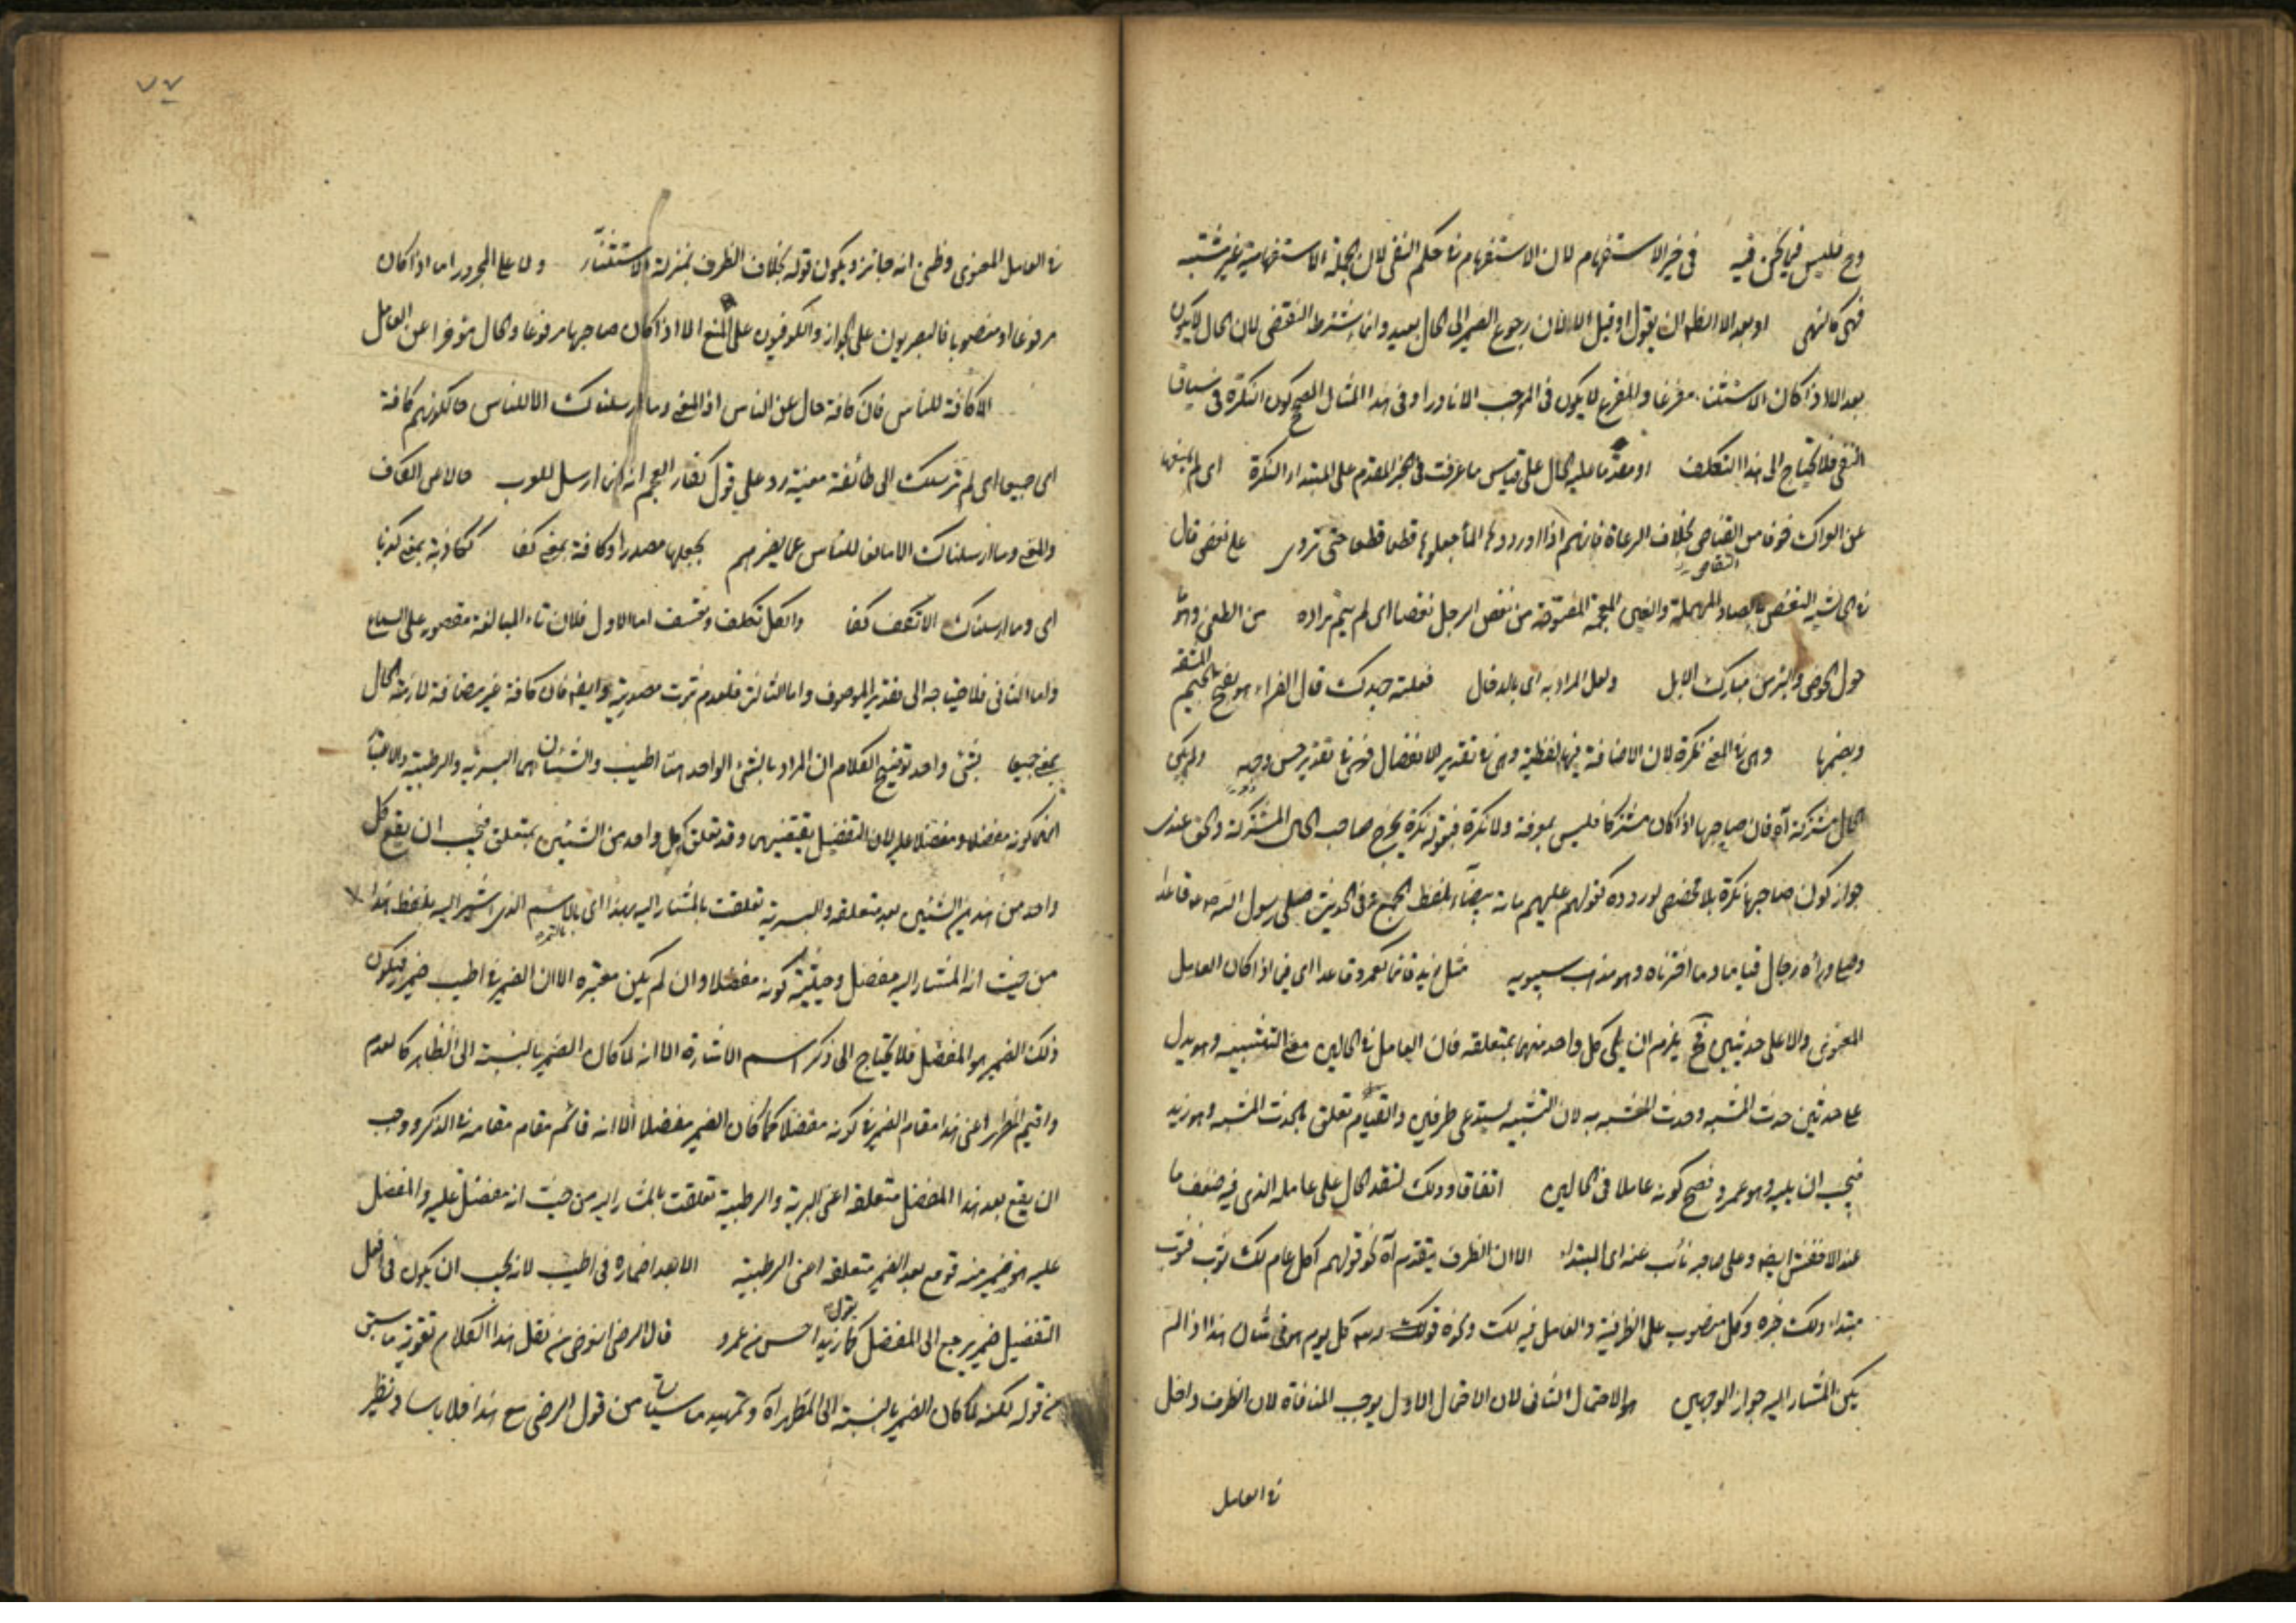 وح فليس فيما نحن فيه في خبر الاستفهام لان الاستفهام في حكم النفي لان الجملة الاستفهامية غير مثبتة
فهي كالنهي او بعد الا ان يقول او قبل الا لان رجوع الضمير الى الحال بعيد وانما اشترط النقض لان الحال لا يكون
بعد الا اذا كان الاستثناء مفرغا والمفرغ لا يكون في الموجب الا نادرا وفي هذا المثال المصحح كون النكرة في سياق
النفي فلا يحتاج الى هذا التكلف او مقدما عليه الحال على قياس ما عرفت في الخبر المقدم على المبتداء النكرة اى لم يمنعها
عن العراك خوفا من القناص بخلاف الرعاة فانهم اذا اوردوها الماء جعلوها قطعا قطعا حتى تروى على نغص قال
في الحاشية النغص بالصاد المهملة والغين المعجمة المفتوحة من نغص الرجل نغصا اى لم يتم مراده من العطن وهو
حول الحوض والبئر من مبارك الابل ولعل المراد به اى بالدخال فعلته جهدك قال الفراء هو بفتح الجيم المشقة
وبضمها وهي في المعنى نكرة لان الاضافة فيها لفظية وهي في تقدير الانفصال فهي في تقدير حسن وجهه ولم يكن
الحال مشتركة آه فان صاحبها اذا كان مشتركا فليس بمعرفة ولا نكرة فبقوله نكرة يخرج صاحب الحال المشتركة والحق عندى
جواز كون صاحبها نكرة بلا مخصص لوروده كقولهم عليهم مائة بيضاء بلفظ الجمع وفي الحديث صلى رسول الله قاعدا
وصلى وراءه رجال قياما وما اخترناه وهو مذهب سيبويه مثل زيد قائما كعمرو قاعدا اى فيما اذا كان العامل
المعنوى دالا على حدثين فح يلزم ان يلى كل واحد منهما بمتعلقه فان العامل في الحالين معنى التشبيه وهو يدل
على حدثين حدث المشبه وحدث المشبه به لان التشبيه يستدعى طرفين والقيام تعلق بحدث المشبه وهو زيد
فيجب ان يليه وهو عمرو فصح كونه عاملا في الحالين اتفاقا وذلك لتقدم الحال على عامله الذى فيه ضعف ما
عند الاخفش ايضا وعلى صاحبه نائب عنه اى المبتداء الا ان الظرف يتقدم آه نحو قولهم اكل عام لك ثوب فثوب
مبتداء ولك خبره وكل منصوب على الظرفية والعامل فيه لك ونحوه قولك كل يوم هو في شأن هذا اذا لم
يكن المشار اليه جواز الوجهين هو الاحتمال الثاني لان الاحتمال الاول يوجب المنافاة لان الظرف داخل
في العامل
٧٧
في العامل المعنوى وظن انه جائز ويكون قوله بخلاف الظرف بمنزلة الاستثناء ولا على المجرور اما اذا كان
مرفوعا او منصوبا فالبصريون على الجواز والكوفيون على المنع الا اذا كان صاحبها مرفوعا والحال مؤخرا عن العامل
الا كافة للناس فان كافة حال عن الناس اذ المعنى وما ارسلناك الا للناس حال كونهم كافة
اى جميعا اى لم نرسلك الى طائفة معينة رد على قول كفار العجم انه انما ارسل للعرب حالا عن الكاف
والمعنى وما ارسلناك الا مانعا للناس عما يضرهم بجعلها مصدرا وكافة بمعنى كفا ككاذبة بمعنى كذبا
اى وما ارسلناك الا تكف كفا والكل تكلف وتعسف اما الاول فلان تاء المبالغة مقصور على السماع
واما الثاني فلاحتياجه الى تقدير الموصوف واما الثالث فلعدم ثبوت مصدريته وايضا فان كافة غير مضافة لازمة الحال
بمعنى جميعا بشئ واحد توضيح الكلام ان المراد بالشئ الواحد هنا اطيب والشيئان هما البسرية والرطبية والاعتباران
هما كونه مفضلا ومفضلا عليه لان التفضيل يقتضيهما وقد تعلق كل واحد من الشيئين بمتعلق فيجب ان يقع كل
واحد من هذين الشيئين بعد متعلقه والبسرية تعلقت بالمشار اليه بهذا اى بالاسم الذى اشير اليه بلفظ هذا
من حيث انه المشار اليه مفضل وحيثية كونه مفضلا وان لم يكن معتبرة الا ان الضمير في اطيب ضميره فيكون
ذلك الضمير هو المفضل فلا يحتاج الى ذكر اسم الاشارة الا انه لما كان الضمير بالنسبة الى الظاهر كالعدم
واقيم المظهر اعنى هذا مقام الضمير في كونه مفضلا كما كان الضمير مفضلا الا انه قائم مقام مقامه في الذكر ووجب
ان يقع بعد هذا المفضل متعلقه اعنى البسرية والرطبية تعلقت بالمشار اليه من حيث انه مفضل عليه والمفضل
عليه هو ضمير منه فوقع بعد الضمير متعلقه اعنى الرطبية الا بعد اضماره في اطيب لانه يجب ان يكون في افعل
التفضيل ضمير يرجع الى المفضل كما تقول زيد احسن من عمرو قال الرضى الغرض من نقل هذا الكلام تقوية ما سبق
من قوله لكنه لما كان الضمير بالنسبة الى المظهر آه وتمهيد ما سيأتى من قول الرضى مع هذا فلا باسا ونظير